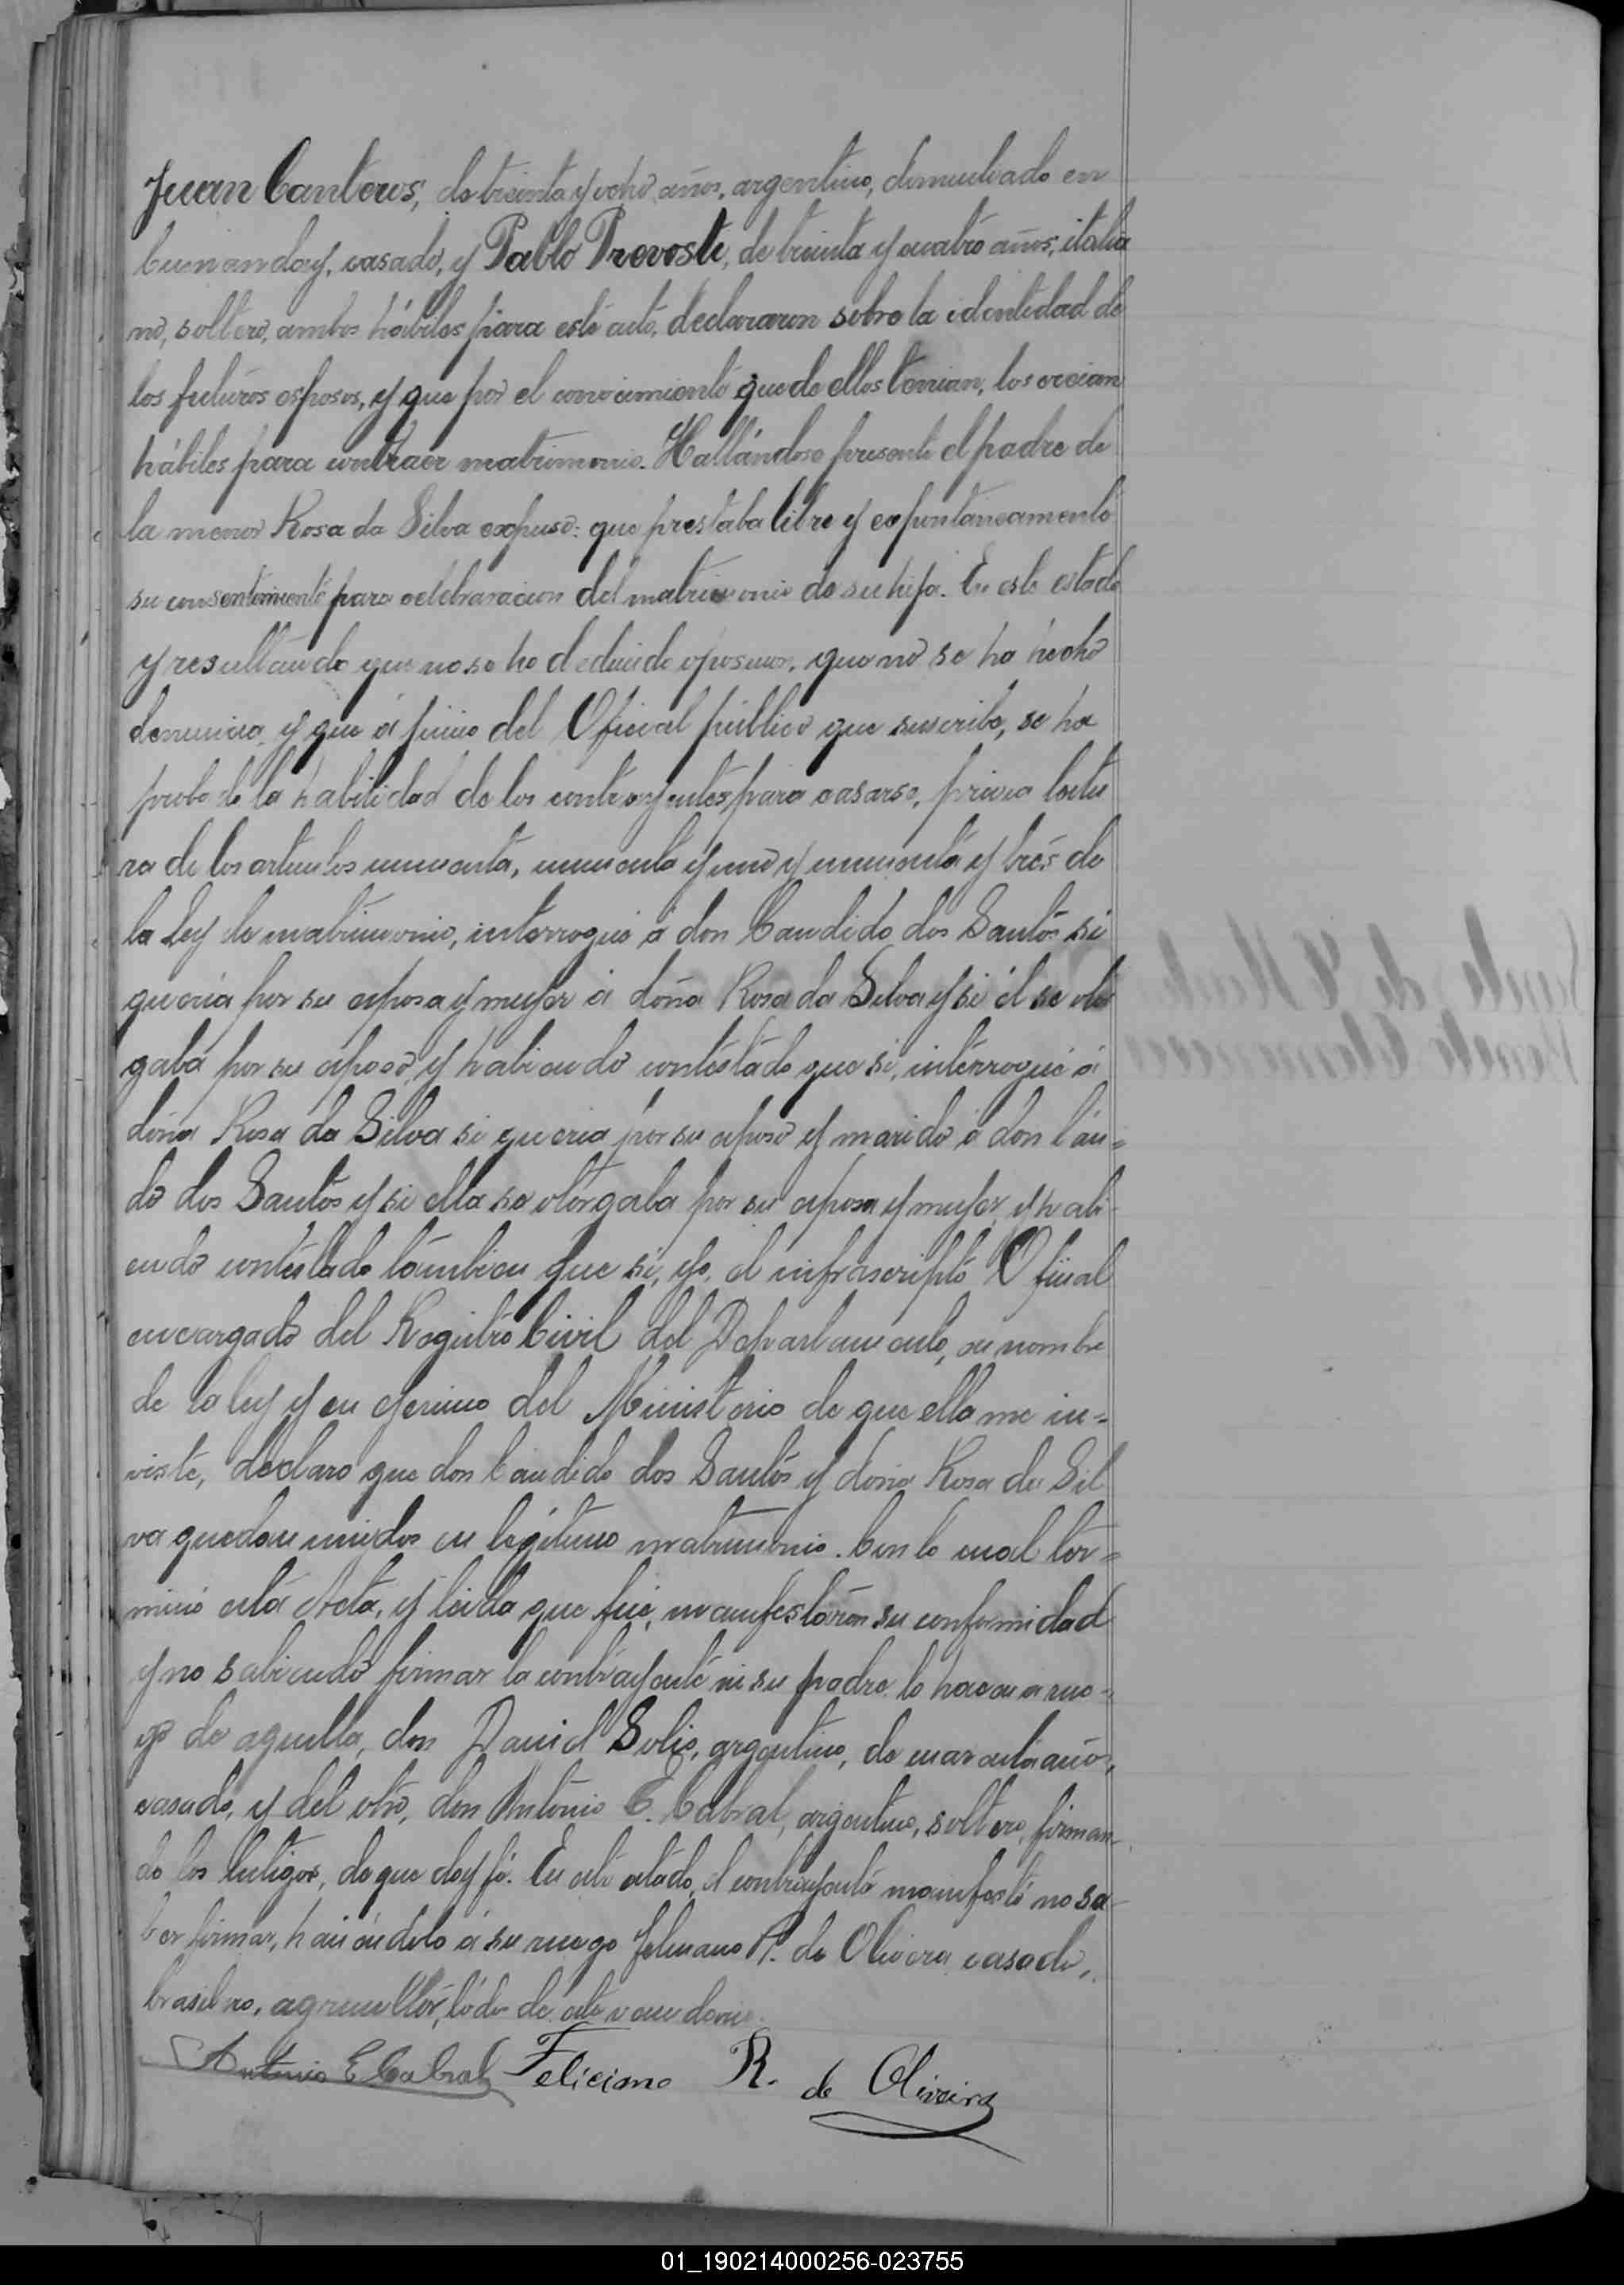 Juan Canteros, de treinta y ocho años, argentino, domiciliado en
Cunanday, casado, y Pablo Prevoste, de treinta y cuatro años, italia
no, soltero, ambos hábiles para este acto, declararon sobre la identidad de
los futuros esposos, y que por el conocimiento que de ellos tenian, los creian
hábiles para contraer matrimonio. Hallándose presente el padre de
la menor Rosa da Silva expuso: que prestaba libre y espontaneamente
su consentimiento para celebraracion del matrimonio de su hija. En este estado
y resultando que no se ha deducido oposicion, que no se ha hecho
denuncia y que á juicio del Oficial público que suscribe, se ha
probado la habilidad de los contrayentes para casarse, previa lectu
ra de los articulos cincuenta, cincuenta y uno y cincuenta y trés de
la Ley de matrimonio, interrogué á don Candido dos Santos si
queria por su esposa y mujer á doña Rosa da Silva y si él se otor
gaba por su esposo, y habiendo contestado que si, interrogué á
doña Rosa da Silva si queria por su esposo y marido á don Cán=
do dos Santos y si ella se otorgaba por su esposa y mujer, y habi-
endo contestado tambien que si, yo, el infrascripto Oficial
encargado del Registro Civil del Departamento, en nombre
de la ley y en ejercicio del Ministerio de que ella me in=
viste, declaro que don Candido dos Santos y doña Rosa da Sil
va quedan unidos en legitimo matrimonio. Con lo cual ter=
minó esta Acta, y leida que fué, manifestaron su conformidad
y no sabiendo firmar la contrayente ni su padre lo hacen a rue-
go de aquella, don Daniel Solis, argentino, de cuarenta años,
casado, y del otro, don Antonio E. Cabral, argentino, soltero, firman-
do los testigos, de que doy fé. En este estado, el contrayente manifestó no sa-
ber firmar, haciéndolo á su ruego Feliciano R. de Olivera casado,
brasilero, agricultor, todo de este vecindario.
Antonio E Cabral Feliciano R. de Oliveira
01_190214000256-023755